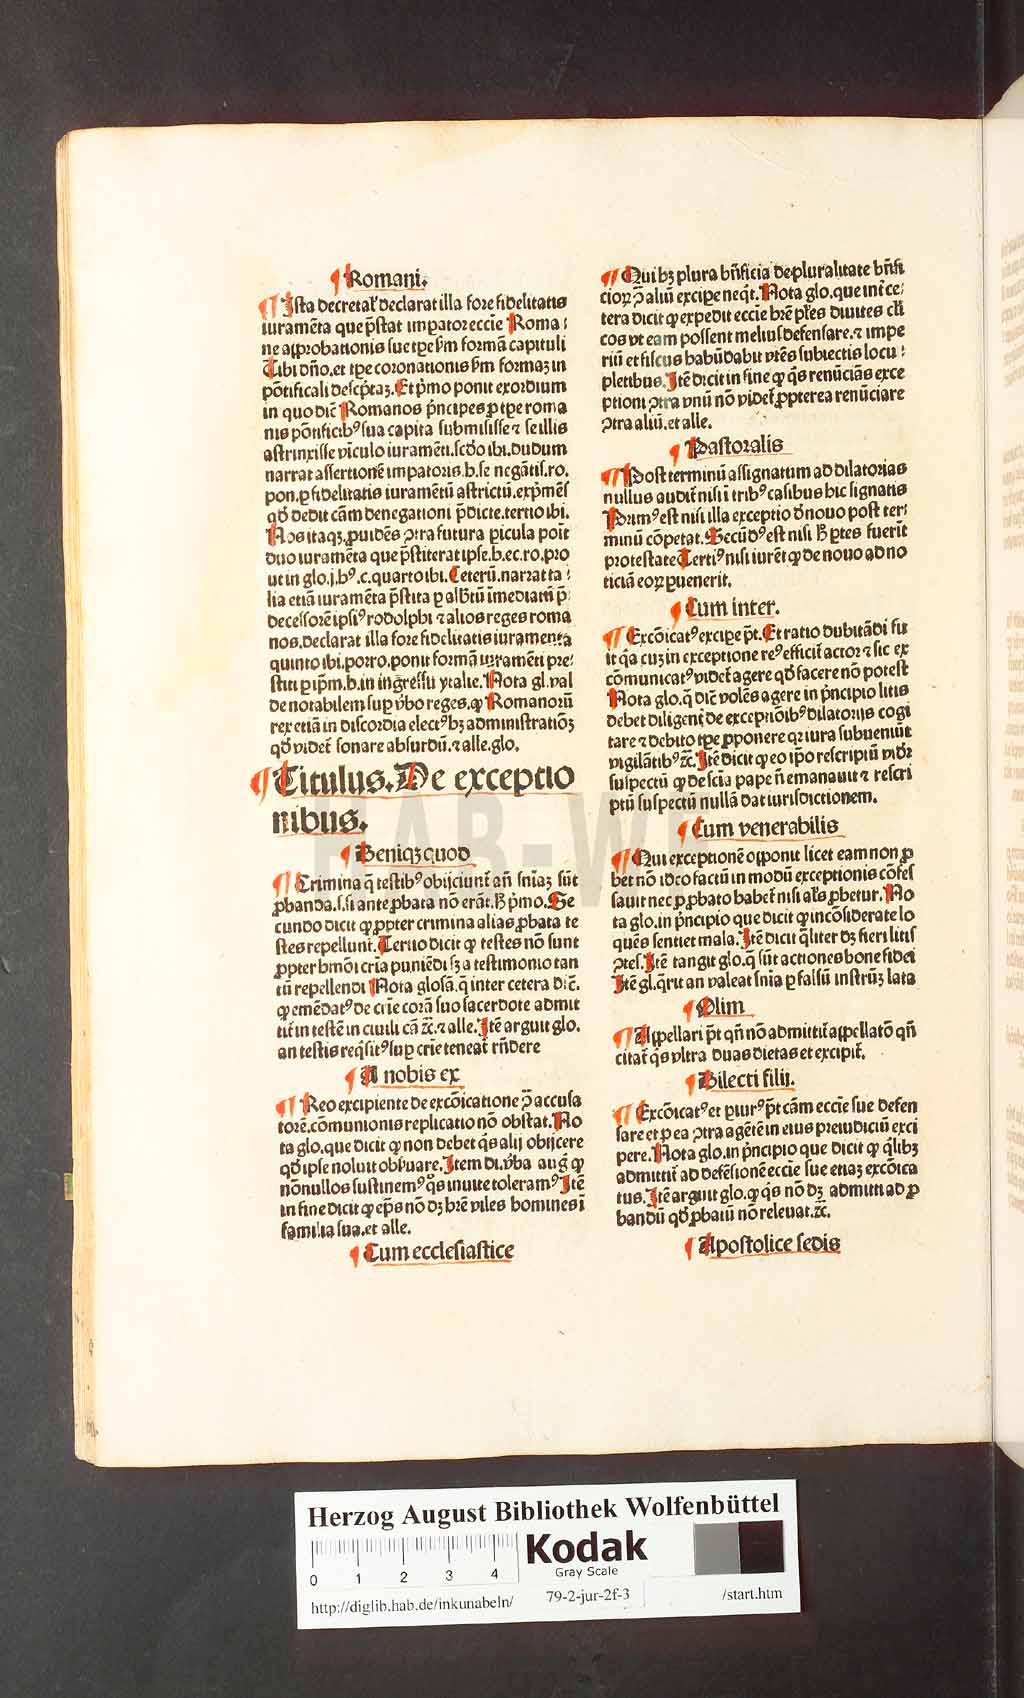 ¶ Romani.
¶ Ista decretal' declarat illa fore fidelitatis
iuramēta que p̄stat imꝑator eccīe Roma⸗
ne aꝓbationis sue tꝑe s̄m formā capituli
Tibi dño. et tꝑe coronationis s̄m formaꝫ in
pōtificali descp̄taꝫ. Et p̄mo ponit exordium
in quo dic̄ Romanos p̄ncipes ꝓ tꝑe roma
nis pōtificibꝰ sua capita submisisse ⁊ se illis
astrinxisse vīculo iuramēti. scd̄o ibi. dudum
narrat assertionē imꝑatoris. h. se negātis. ro.
pon. ꝑ fidelitatis iuramētū astrictū. exp̄mēs
qd̄ dedit cām denegationi p̄dicte. tertio ibi.
Nos itaqꝫ, ꝓuidēs ꝯtra futura ꝑicula poit
duo iuramēta que p̄stiterat ipse. h. ec. ro. pro
ut in glo. j. hꝰ. c. quarto ibi. Ceterū. narrat ta⸗
lia etiā iuramēta p̄stita ꝑ albtū īmediatū p̄⸗
decessorē ipsiꝰ rodolphi ⁊ alios reges roma
nos. declarat illa fore fidelitatis iuramenta
quinto ibi. porro. ponit formā iuramēti pre⸗
stiti ꝑ ip̄m. h. in ingressu ytalie. Nota gl. val
de notabilem suꝑ v̄bo reges. ꝙ Romanorū
rex etiā in discordia electꝰ hꝫ administratiōꝫ
qd̄ videt̄ sonare absurdū. ⁊ alle. glo.
¶ Titulus. De exceptio
nibus.
¶ Deniqꝫ quod
¶ Crimina q̄ testibꝰ obijciunt̄ an̄ sn̄iaꝫ sūt
ꝓbanda. s. si ante ꝓbata nō erāt. hꝫ p̄mo. Se
cundo dicit ꝙ ꝓpter crimina alias ꝓbata te
stes repellunt̄. Tertio dicit ꝙ testes nō sunt
ꝓpter hmōi crīa puniēdi sꝫ a testimonio tan
tū repellendi Nota glosā. q̄ inter cetera dic̄.
ꝙ emēdatꝰ de crīe corā suo sacerdote admit
tit̄ in testē in ciuili cā ⁊c̄. ⁊ alle. Itē arguit glo.
an testis reqͥsitꝰ suꝑ crīe teneat̄ rn̄dere
¶ A nobis ex
¶ Reo excipiente de excōicatione ꝯ̄ accusa
torē. cōmunionis replicatio nō obstat. No
ta glo. que dicit ꝙ non debet qͥs alij obijcere
qd̄ ipse noluit obẜuare. Item di. v̄ba auḡ ꝙ
nōnullos sustinemꝰ qͥs inuite toleramꝰ Itē
in fine dicit ꝙ ep̄s nō dꝫ hr̄e viles homines ī
familia sua. et alle.
¶ Cum ecclesiastice
¶ Qui hꝫ plura bn̄ficia de pluralitate bn̄fi
cioꝝ ꝯ̄ aliū excipe neqͥt. Nota glo. que int̄ ce⸗
tera dicit ꝙ expedit eccīe hr̄e p̄les diuites cl̄i
cos vt eam possent melius defensare. ⁊ impe
riū et fiscus habūdabit vtr̄es subiectis locu⸗
pletibus. Itē dicit in fine ꝙ qͥs renūciās exce
ptioni ꝯtra vnū nō videt̄ ꝓpterea renūciare
ꝯtra aliū. et alle.
¶ Pastoralis
¶ Post terminū assignatum ad dilatorias
nullus audit̄ nisi ī tribꝰ casibus hic signatis
Primꝰ est nisi illa exceptio d̄nouo post ter⸗
minū cōpetat. Secūdꝰ est nisi hꝫ ꝑtes fuerīt
protestate Tertiꝰ nisi iuret̄ ꝙ de nouo ad no
ticiā eoꝝ ꝑuenerit.
¶ Cum inter.
¶ Excōicatꝰ excipe pt̄. Et ratio dubitādi fu
it qͥa cuꝫ in exceptione reꝰ efficit̄ actor ⁊ sic ex
cōmunicatꝰ videt̄ agere qd̄ facere nō potest
Nota glo. q̄ dic̄ volēs agere in p̄ncipio litis
debet diligent̄ de exceptiōibꝰ dilatorijs cogi
tare ⁊ debito tꝑe ꝓponere qꝛ iura subueniūt
vigilātibꝰ ⁊c̄. Itē dicit ꝙ eo ip̄o rescriptū vid̄r
suspectū ꝙ de scīa pape n̄ emanauit ⁊ rescri
ptū suspectū nullā dat iurisdictionem.
¶ Cum venerabilis
¶ Qui exceptionē oꝓponit licet eam non ꝓ
bet nō ideo factū in modū exceptionis cōfes
sauit nec ꝓ ꝓbato habet̄ nisi al's ꝓbetur. No
ta glo. in p̄ncipio que dicit ꝙ incōsiderate lo
quēs sentiet mala. Itē dicit qͣliter dꝫ fieri litis
ꝯtes. Itē tangit glo. q̄ sūt actiones bone fidei
Itē gl. q̄rit an valeat sn̄ia ꝑ falsū instrūꝫ lata
¶ Olim
¶ Appellari pt̄ qn̄ nō admittit̄ appellatō qn̄
citat̄ qͥs vltra duas dietas et excipit̄.
¶ Dilecti filij.
¶ Excōicatꝰ et ꝑiurꝰ pt̄ cām eccīe sue defen
sare et ꝑ ea ꝯtra agētē in eius preiudiciū exci
pere. Nota glo. in p̄ncipio que dicit ꝙ qͥlibꝫ
admittit̄ ad defēsionē eccīe sue etiaꝫ excōica
tus. Itē arguit glo. ꝙ qͥs nō dꝫ admitti ad ꝓ
bandū qd̄ ꝓbatū nō releuat. ⁊c̄.
¶ Apostolice sedis
HAB-WF
Herzog August Bibliothek Wolfenbüttel
0 1 2 3 4
Kodak
Gray Scale
http://diglib.hab.de/inkunabeln/ 79-2-jur-2f-3 /start.htm